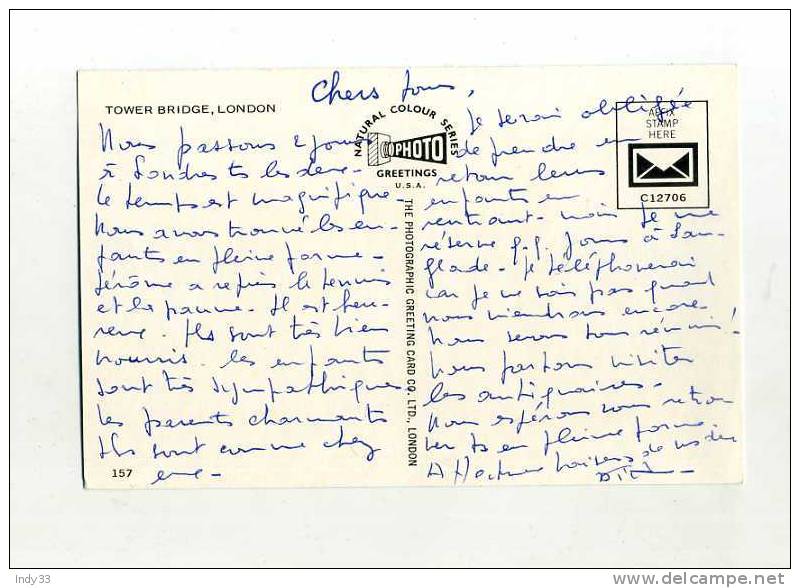 Chers tous,
TOWER BRIDGE, LONDON
Nous passons 2 jours
à Londres ts les deux -
le temps est magnifique -
Nous avons trouvé les en-
fants en pleine forme -
Jérôme a repris le tennis
et la paume - Il est heu-
reux - Ils sont très bien
nourris - les enfants
sont très sympathiques
les parents charmants
Ils sont comme chez
eux -
157
NATURAL COLOUR SERIES
PHOTO
GREETINGS
U.S.A.
THE PHOTOGRAPHIC GREETING CARD CO. LTD., LONDON
AFFIX
STAMP
HERE
C12706
Je serai obligée
de prendre en
retour leurs
enfants en
rentrant - mais je me
réserve q.q. jours à Lan-
glade - Je téléphonerai
car je ne sais pas quand
nous viendrons encore -
Nous serons tous réunis!
Nous partons visiter
les antiquaires -
Nous espérons vous retrou-
ver ts en pleine forme
Affectueux baisers de nous deux